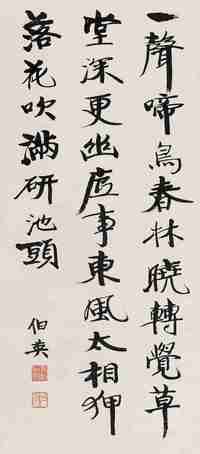 一聲啼鳥春林曉轉覺草
堂深更幽底事東風太相狎
落花吹滿研池頭
伯英